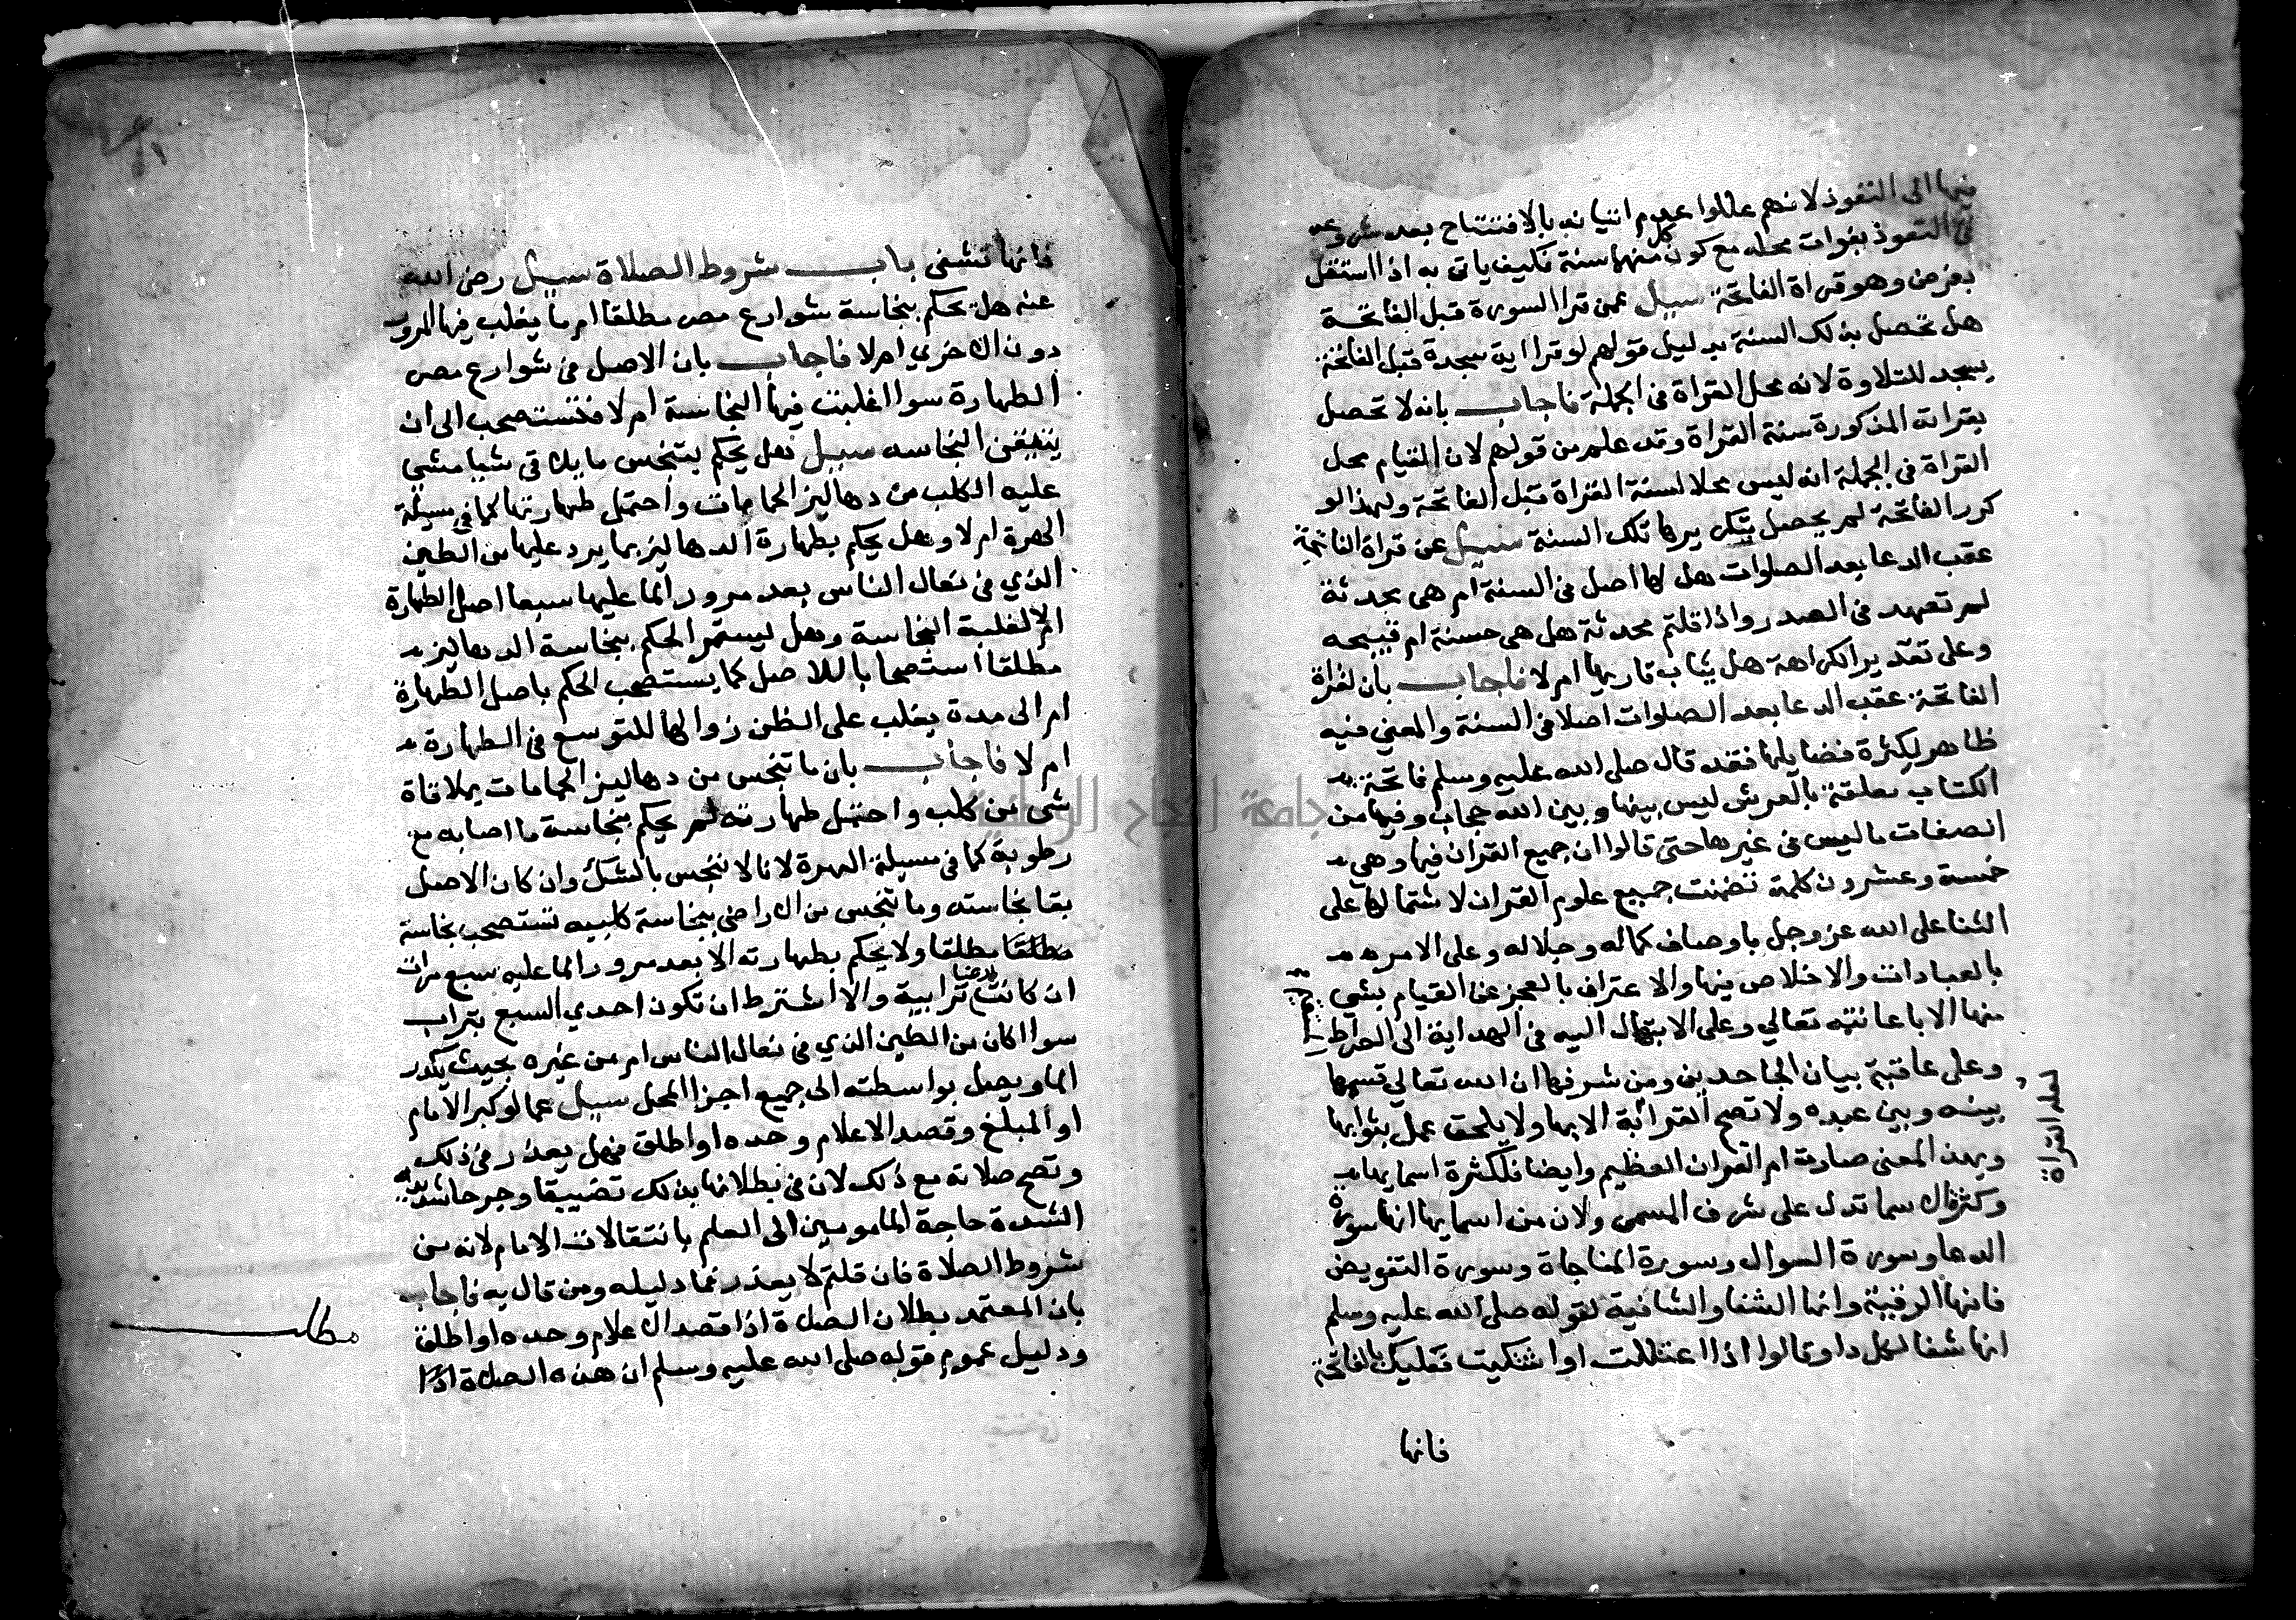 فيها الى التعوذ لانهم عللوا عدم اتيانه بالافتتاح بعد شروعه
في التعوذ بفوات محله مع كون كل منهما سنة فكيف ياتي به اذا استقل
بفرض وهو قراة الفاتحة سيل عمن قرا السورة قبل الفاتحة
هل تحصل بذلك السنة بدليل قولهم لو قرا اية سجدة قبل الفاتحة
يسجد للتلاوة لانه محل القراة في الجملة فاجاب بانه لا تحصل
بقراته المذكورة سنة القراة وقد علم من قولهم لان القيام محل
القراة في الجملة انه ليس محلا لسنة القراة قبل الفاتحة ولهذا لو
كرر الفاتحة لم يحصل بتكريرها تلك السنة سيل عن قراة الفاتحة
عقب الدعا بعد الصلوات هل لها اصل في السنة ام هي محدثة
لم تعهد في الصدر واذا قلتم محدثة هل هي حسنة ام قبيحه
وعلى تقدير الكراهة هل يثاب قاريها ام لا فاجاب بان لقراة
الفاتحة عقب الدعا بعد الصلوات اصلا في السنة والمعني فيه
ظاهر لكثرة فضايلها فقد قال صلى الله عليه وسلم فاتحة
الكتاب معلقة بالعرش ليس بينها وبين الله حجاب وفيها من
الصفات ما ليس في غيرها حتى قالوا ان جميع القران فيها وهي
خمسة وعشرون كلمة تضمنت جميع علوم القران لاشتمالها على
الثنا على الله عز وجل باوصاف كماله وجلاله وعلى الامر
بالعبادات والاخلاص فيها والاعتراف بالعجز عن القيام بشي
منها الا باعانته تعالي وعلى الابتهال اليه في الهداية الى الصراط المستقيم
وعلى عاقبة بيان الجاحدين ومن شرفها ان الله تعالي قسمها
بينه وبين عبده ولا تصح القرابة الا بها ولا يلحق عمل بثوابها
لعله القراة
وبهذا المعنى صارت ام القران العظيم وايضا فلكثرة اسمايها
وكثرة الاسما تدل على شرف المسمى ولان من اسمايها انها سورة
الدعا وسورة السوال وسورة المناجاة وسورة التفويض
فانها الرقية وانها الشفا والشافية لقوله صلى الله عليه وسلم
انها شفا لكل دا وقالوا اذا اعتللت او اشتكيت فعليك بالفاتحة
فانها
فانها تشفى باب شروط الصلاة سيل رضي الله
عنه هل يحكم بنجاسة شوارع مصر مطلقا ام ما يغلب فيها المرور
دون الاخري ام لا فاجاب بان الاصل في شوارع مصر
الطهارة سوا اغلبت فيها النجاسة ام لا فتستصحب الى ان
يتحقق النجاسه سيل هل يحكم بتنجس ما يلاقي شيا مشي
عليه الكلب من دهاليز الحمامات واحتمل طهارتها كما في مسيلة
الهرة ام لا وهل يحكم بطهارة الدهاليز بما يرد عليها من الطين
الذي في نعال الناس بعد مرور الما عليها سبعا اصل الطهارة
ام لا لغلبة النجاسة وهل يستمر الحكم بنجاسة الدهاليز
مطلقا استصحابا للاصل كما يستصحب الحكم باصل الطهارة
ام الى مدة يغلب على الظن زوالها للتوسع في الطهارة
ام لا فاجاب بان ما تنجس من دهاليز الحمامات بملاقاة
شي من كلب واحتمل طهارته لم يحكم بنجاسة ما اصابه مع
رطوبة كما في مسيلة الهرة لانا لا ننجس بالشك وان كان الاصل
بقا نجاسته وما تنجس من الاراضي بنجاسة كلبيه تستصحب نجاسة
مطلقا مطلقا ولا يحكم بطهارته الا بعد مرور الما عليه سبع مرات
ان كانت ارضا ترابية والا اشترط ان تكون احدي السبع بتراب
سوا اكان من الطين الذي في نعال الناس ام من غيره بحيث يكدر
الما ويصل بواسطته الى جميع اجزا المحل سيل عما لو كبر الامام
او المبلغ وقصد الاعلام وحده او اطلق فهل يعذر في ذلك
وتصح صلاته مع ذلك لان في بطلانها بذلك تضييقا وحرجا شديدا
الشدة حاجة المامومين الى العلم بانتقالات الامام لانه من
شروط الصلاة فان قلتم لا يعذر فما دليله ومن قال به فاجاب
بان المعتمد بطلان الصلاة اذا قصد الاعلام وحده او اطلق
مطلب
ودليل عموم قوله صلى الله عليه وسلم ان هذه الصلاة اذا
جامعة النجاح الوطنية